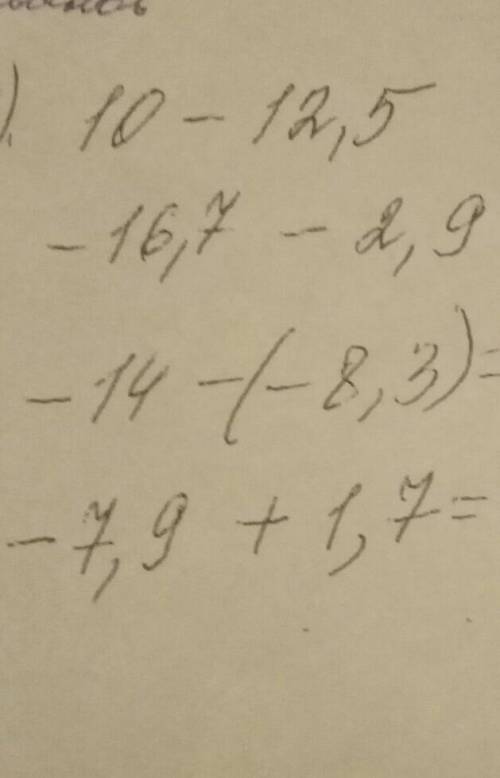 ). 10 - 12,5
- 16,7 - 2,9
- 14 - (- 8,3) =
- 7,9 + 1,7 =